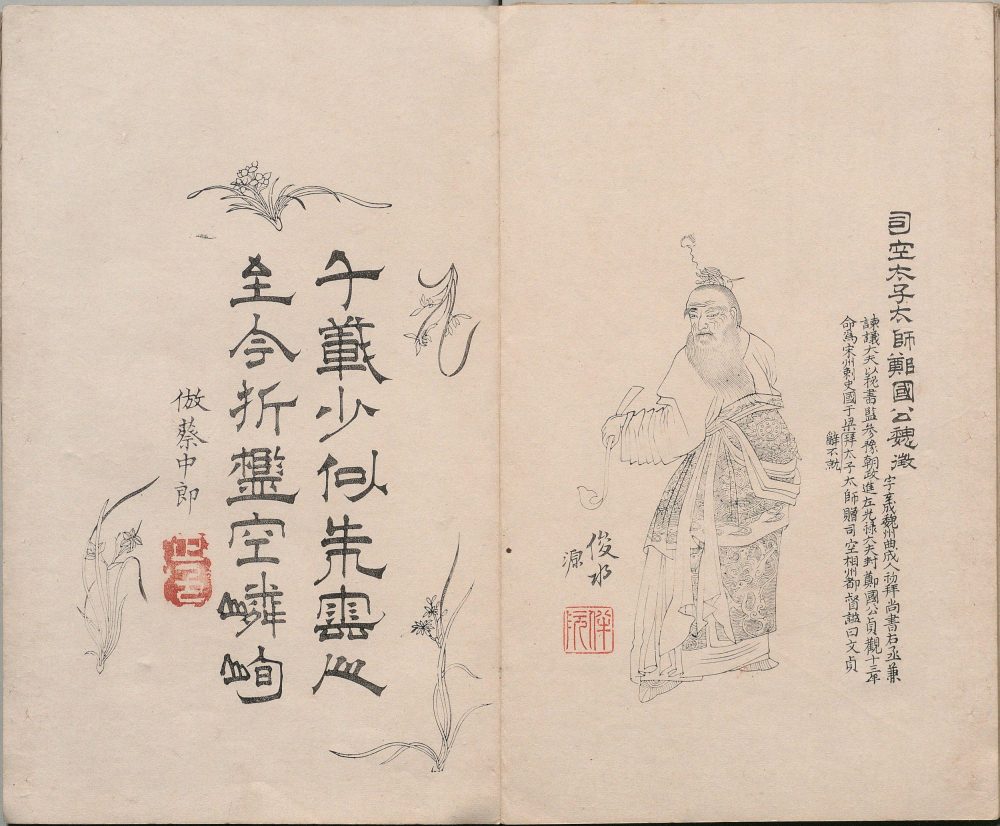 司空太子太師鄭國公魏徵
字玄成魏州曲成人初拜尚書右丞兼
諫議大夫以秘書監參豫朝政進左光祿大夫封鄭國公貞觀十三年
命爲宋州刺史國于梁拜太子太師贈司空相州都督謚曰文貞
辭不就
俊水
源
千載少似朱雲人
至今折檻空嶙峋
倣蔡中郎